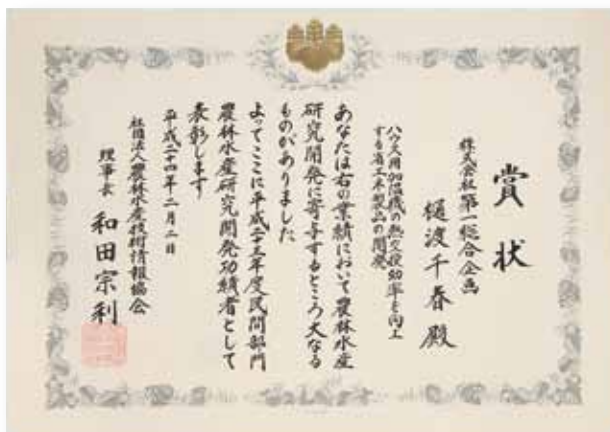 賞状
株式会社第一総合企画
樋渡千春殿
ハウス用加温機の熱交換効率を向上
する省エネ製品の開発
あなたは右の業績において農林水産
研究開発に寄与するところ大なる
ものがありました
よってここに平成二十三年度民間部門
農林水産研究開発功績者として
表彰します
平成二十四年二月二日
社団法人農林水産技術情報協会
理事長 和田宗利